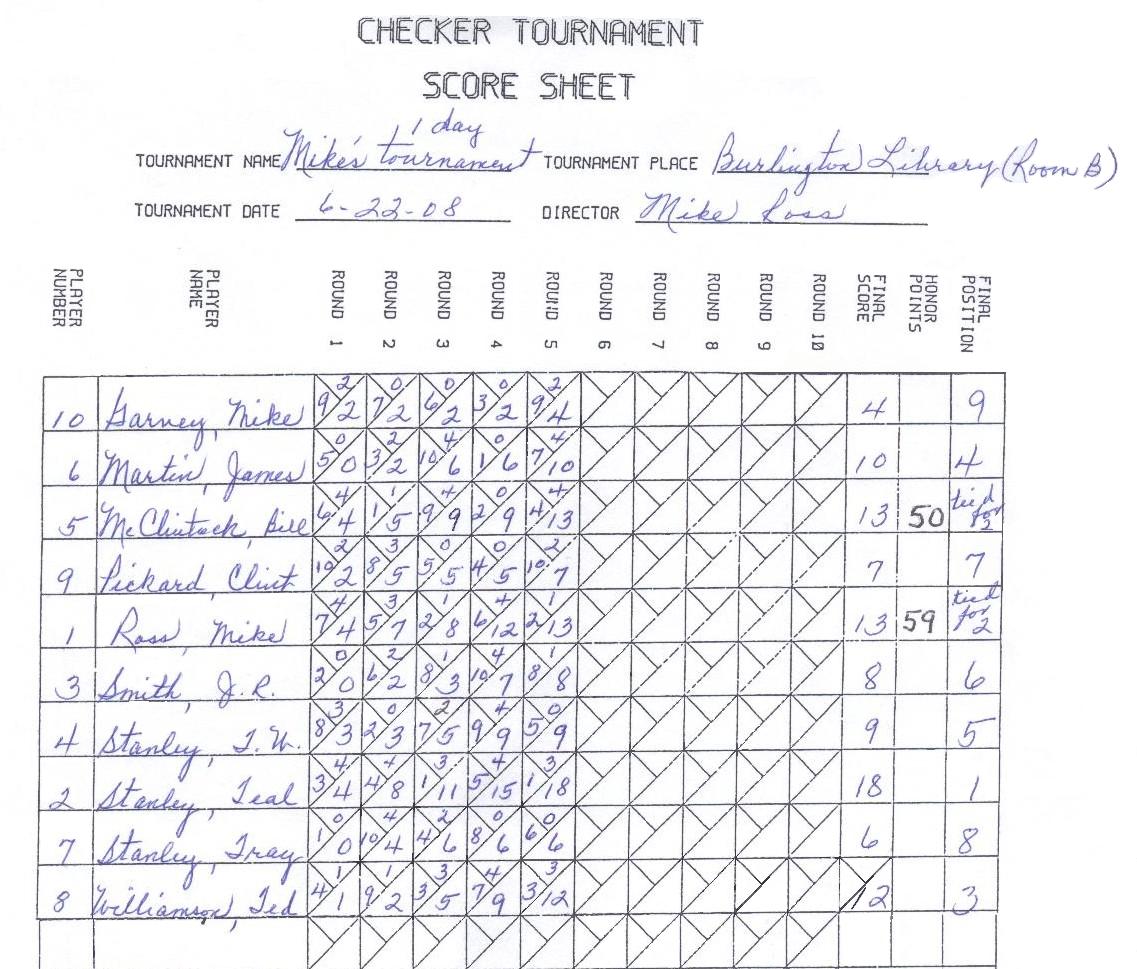 CHECKER TOURNAMENT
SCORE SHEET
1 day
TOURNAMENT NAME Mike's tournament TOURNAMENT PLACE Burlington Library (Room B)
TOURNAMENT DATE 6-22-08 DIRECTOR Mike Ross
PLAYER NUMBER PLAYER NAME ROUND 1 ROUND 2 ROUND 3 ROUND 4 ROUND 5 ROUND 6 ROUND 7 ROUND 8 ROUND 9 ROUND 10 FINAL SCORE HONOR POINTS FINAL POSITION
10 Garney, Mike 9 2 2 7 0 2 6 0 2 3 0 2 9 2 4 4 9
6 Martin, James 5 0 0 3 2 2 10 4 6 1 0 6 7 4 10 10 4
5 McClintock, Bill 6 4 4 1 1 5 9 4 9 2 0 9 4 4 13 13 50 tied for 2
9 Pickard, Clint 10 2 2 8 3 5 5 0 5 4 0 5 10 2 7 7 7
1 Ross, Mike 7 4 4 5 3 7 2 1 8 6 4 12 2 1 13 13 59 tied for 2
3 Smith, J.R. 2 0 0 6 2 2 8 1 3 10 4 7 8 1 8 8 6
4 Stanley, T.W. 8 3 3 2 0 3 7 2 5 9 4 9 5 0 9 9 5
2 Stanley, Teal 3 4 4 4 4 8 1 3 11 5 4 15 1 3 18 18 1
7 Stanley, Tray 1 0 0 10 4 4 4 2 6 8 0 6 6 0 6 6 8
8 Williamson, Ted 4 1 1 9 1 2 3 3 5 7 4 9 3 3 12 12 3